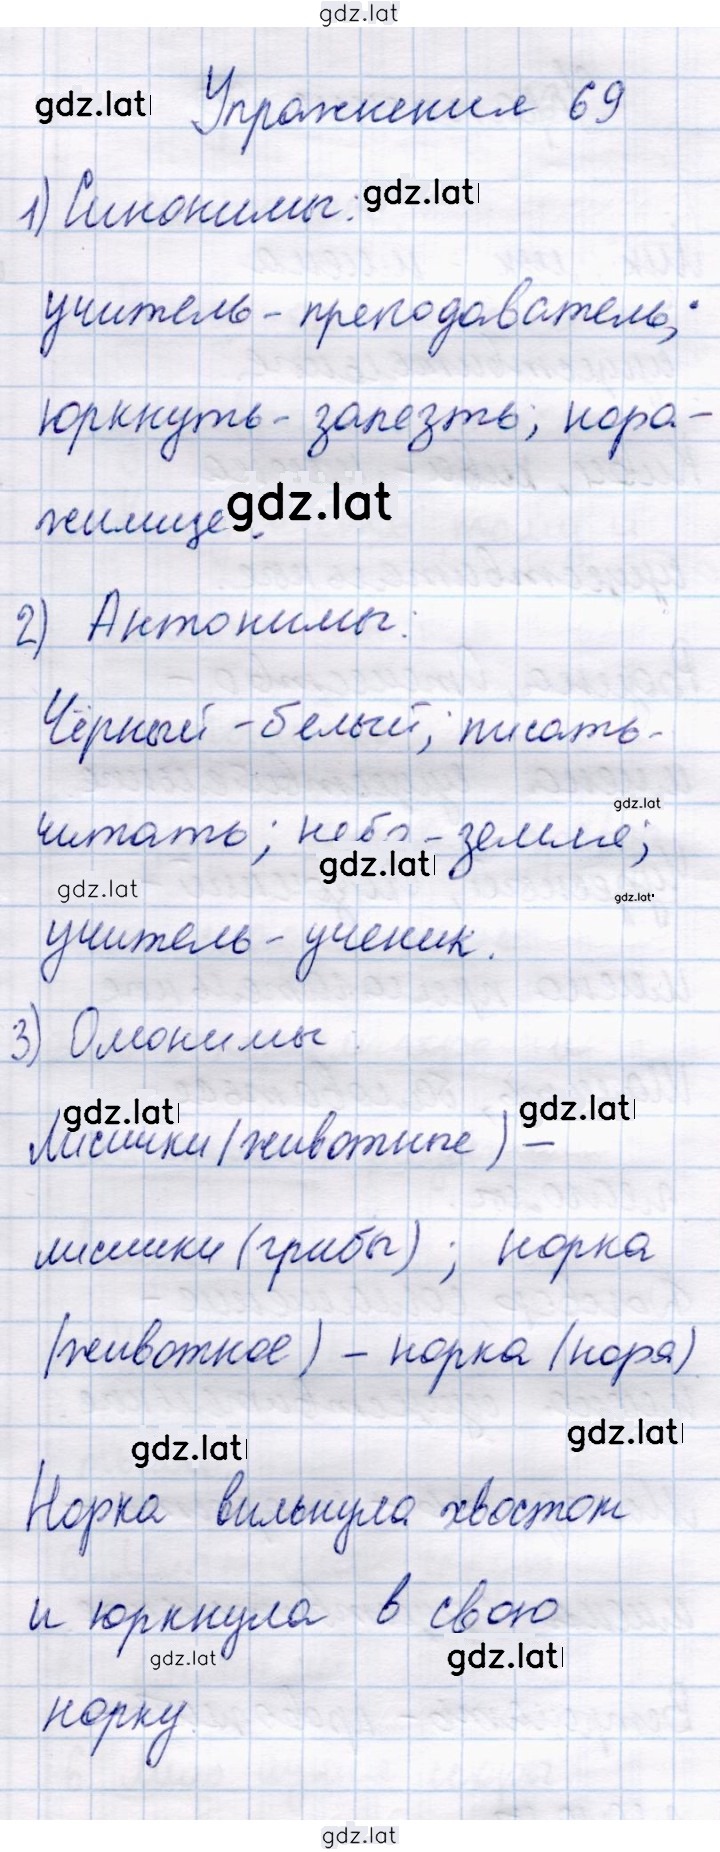 gdz.lat
gdz.lat Упражнения 69
1) Синонимы: gdz.lat
учитель - преподаватель;
юркнуть - залезть; нора -
жилище. gdz.lat
2) Антонимы:
Чёрный - белый; писать -
gdz.lat
читать; небо - земля;
gdz.lat
gdz.lat gdz.lat
учитель - ученик.
3) Омонимы:
gdz.lat gdz.lat
Лисички (животные) -
лисички (грибы); норка
(животное) - норка (норя)
gdz.lat gdz.lat
Норка вильнула хвостом
и юркнула в свою
gdz.lat gdz.lat
норку.
gdz.lat